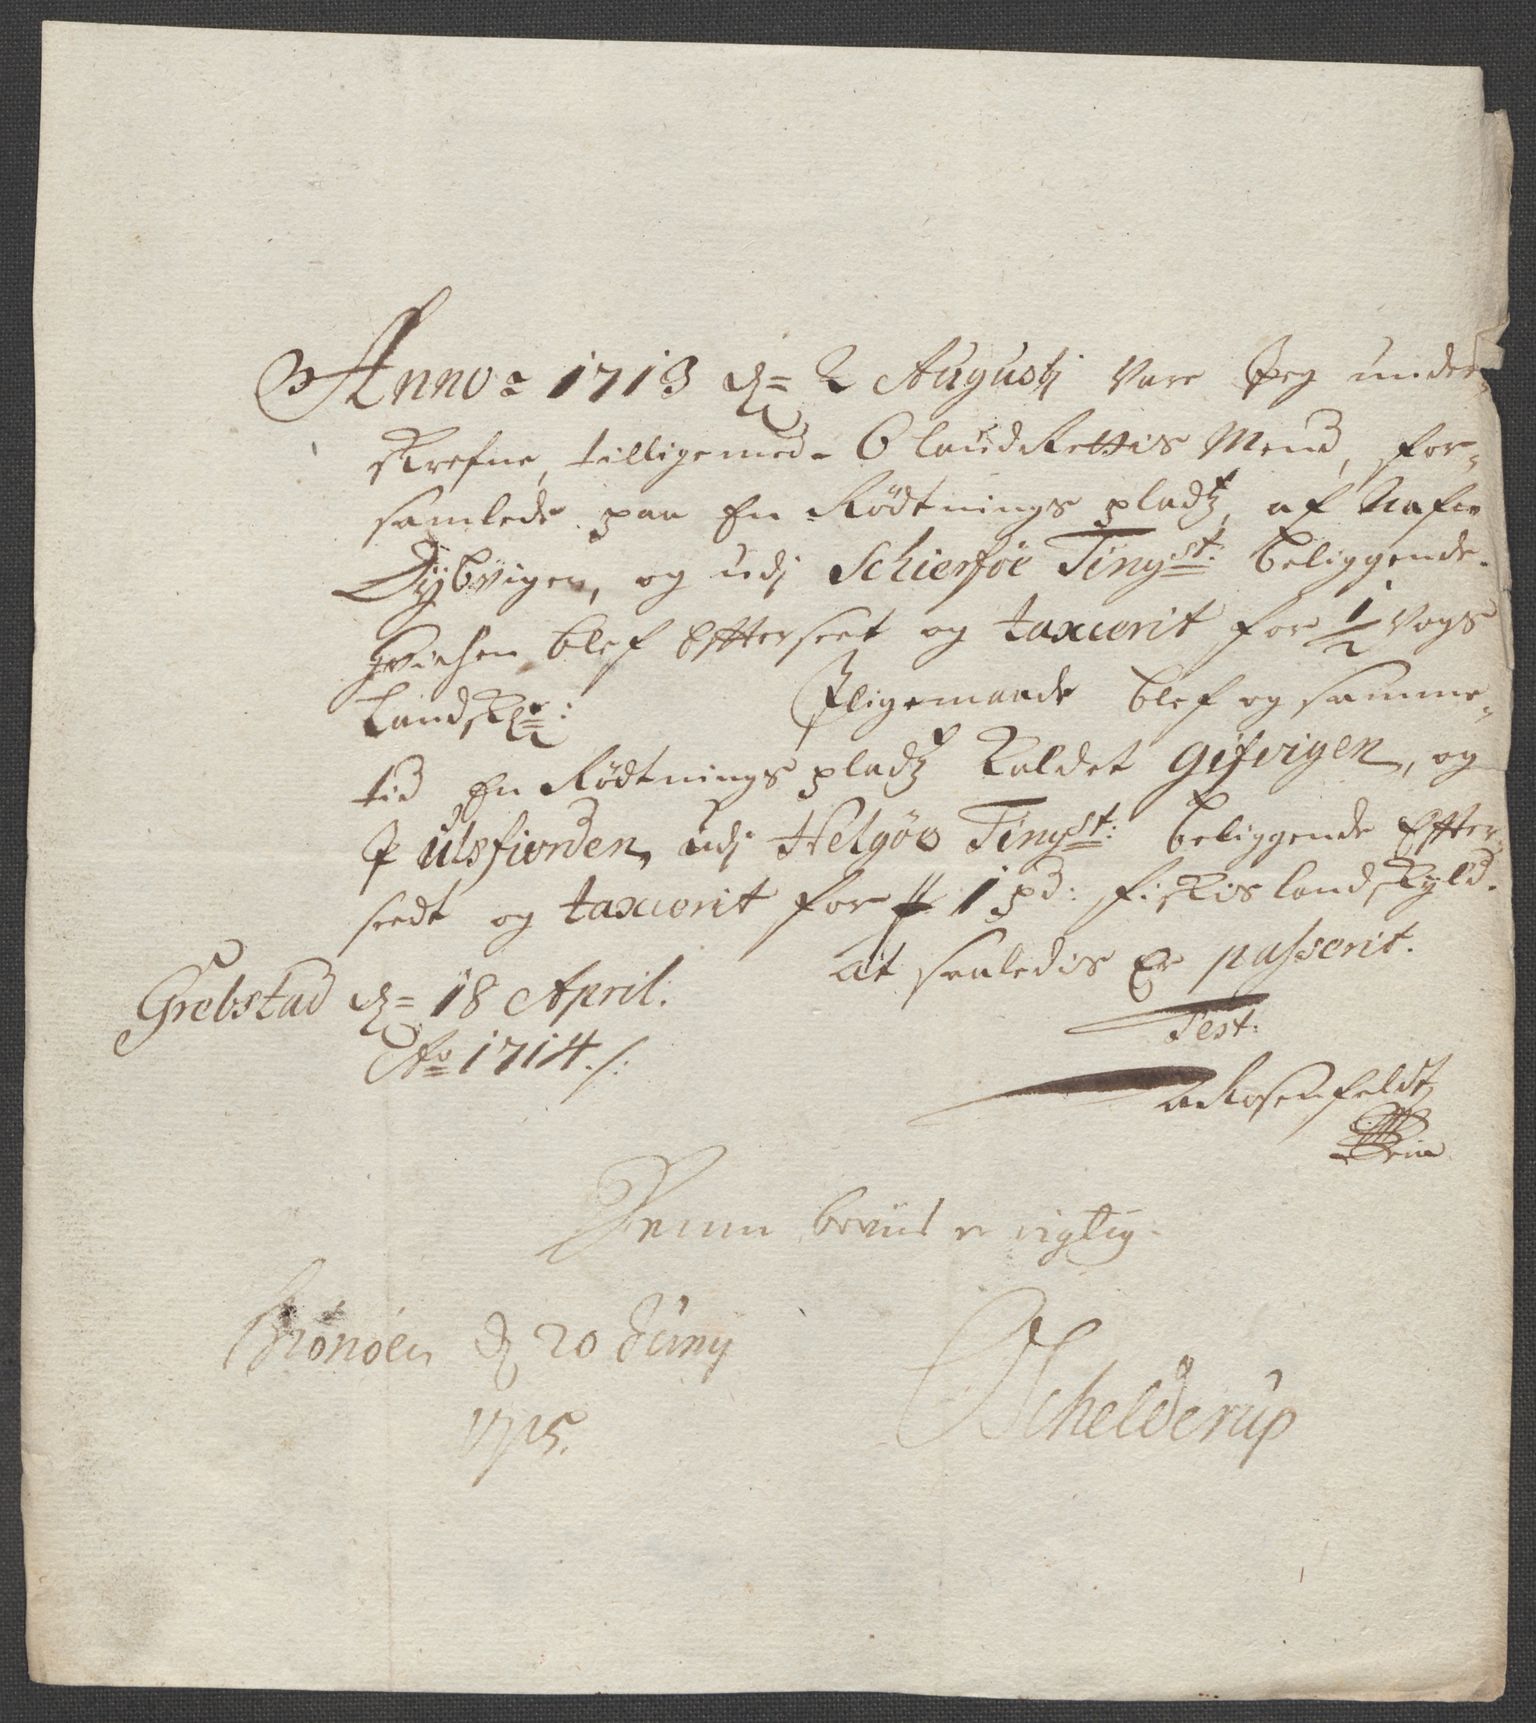 Anno 1713 d= 2 Augustj Vare Jeg under-
skrefne, tilligemed Laud Rettis Mend, for-
samlede paa En Rødtnings pladtz, af Nafn
Dybvigen, og udj Schierføe Tingst: beliggende
hvilken blef Effterseet og taxerit for 1/2 Vogs
Landsk:
Jligemaade blef og samme
tid En Rødtnings pladtz Kaldet Gifvigen, og
J Ulsfiorden, udj Helgøe Tingst: beliggende Effter-
seedt og taxerit for 1 pd: fiskis landskyld.
At saaledis Er passerit.
Grebstad d= 18 April.
Ao 1714./.
Test:
ARosenfeldt
Denne beviis er rigtig.
Brønøen d 20 Juny
1715.
Schelderup